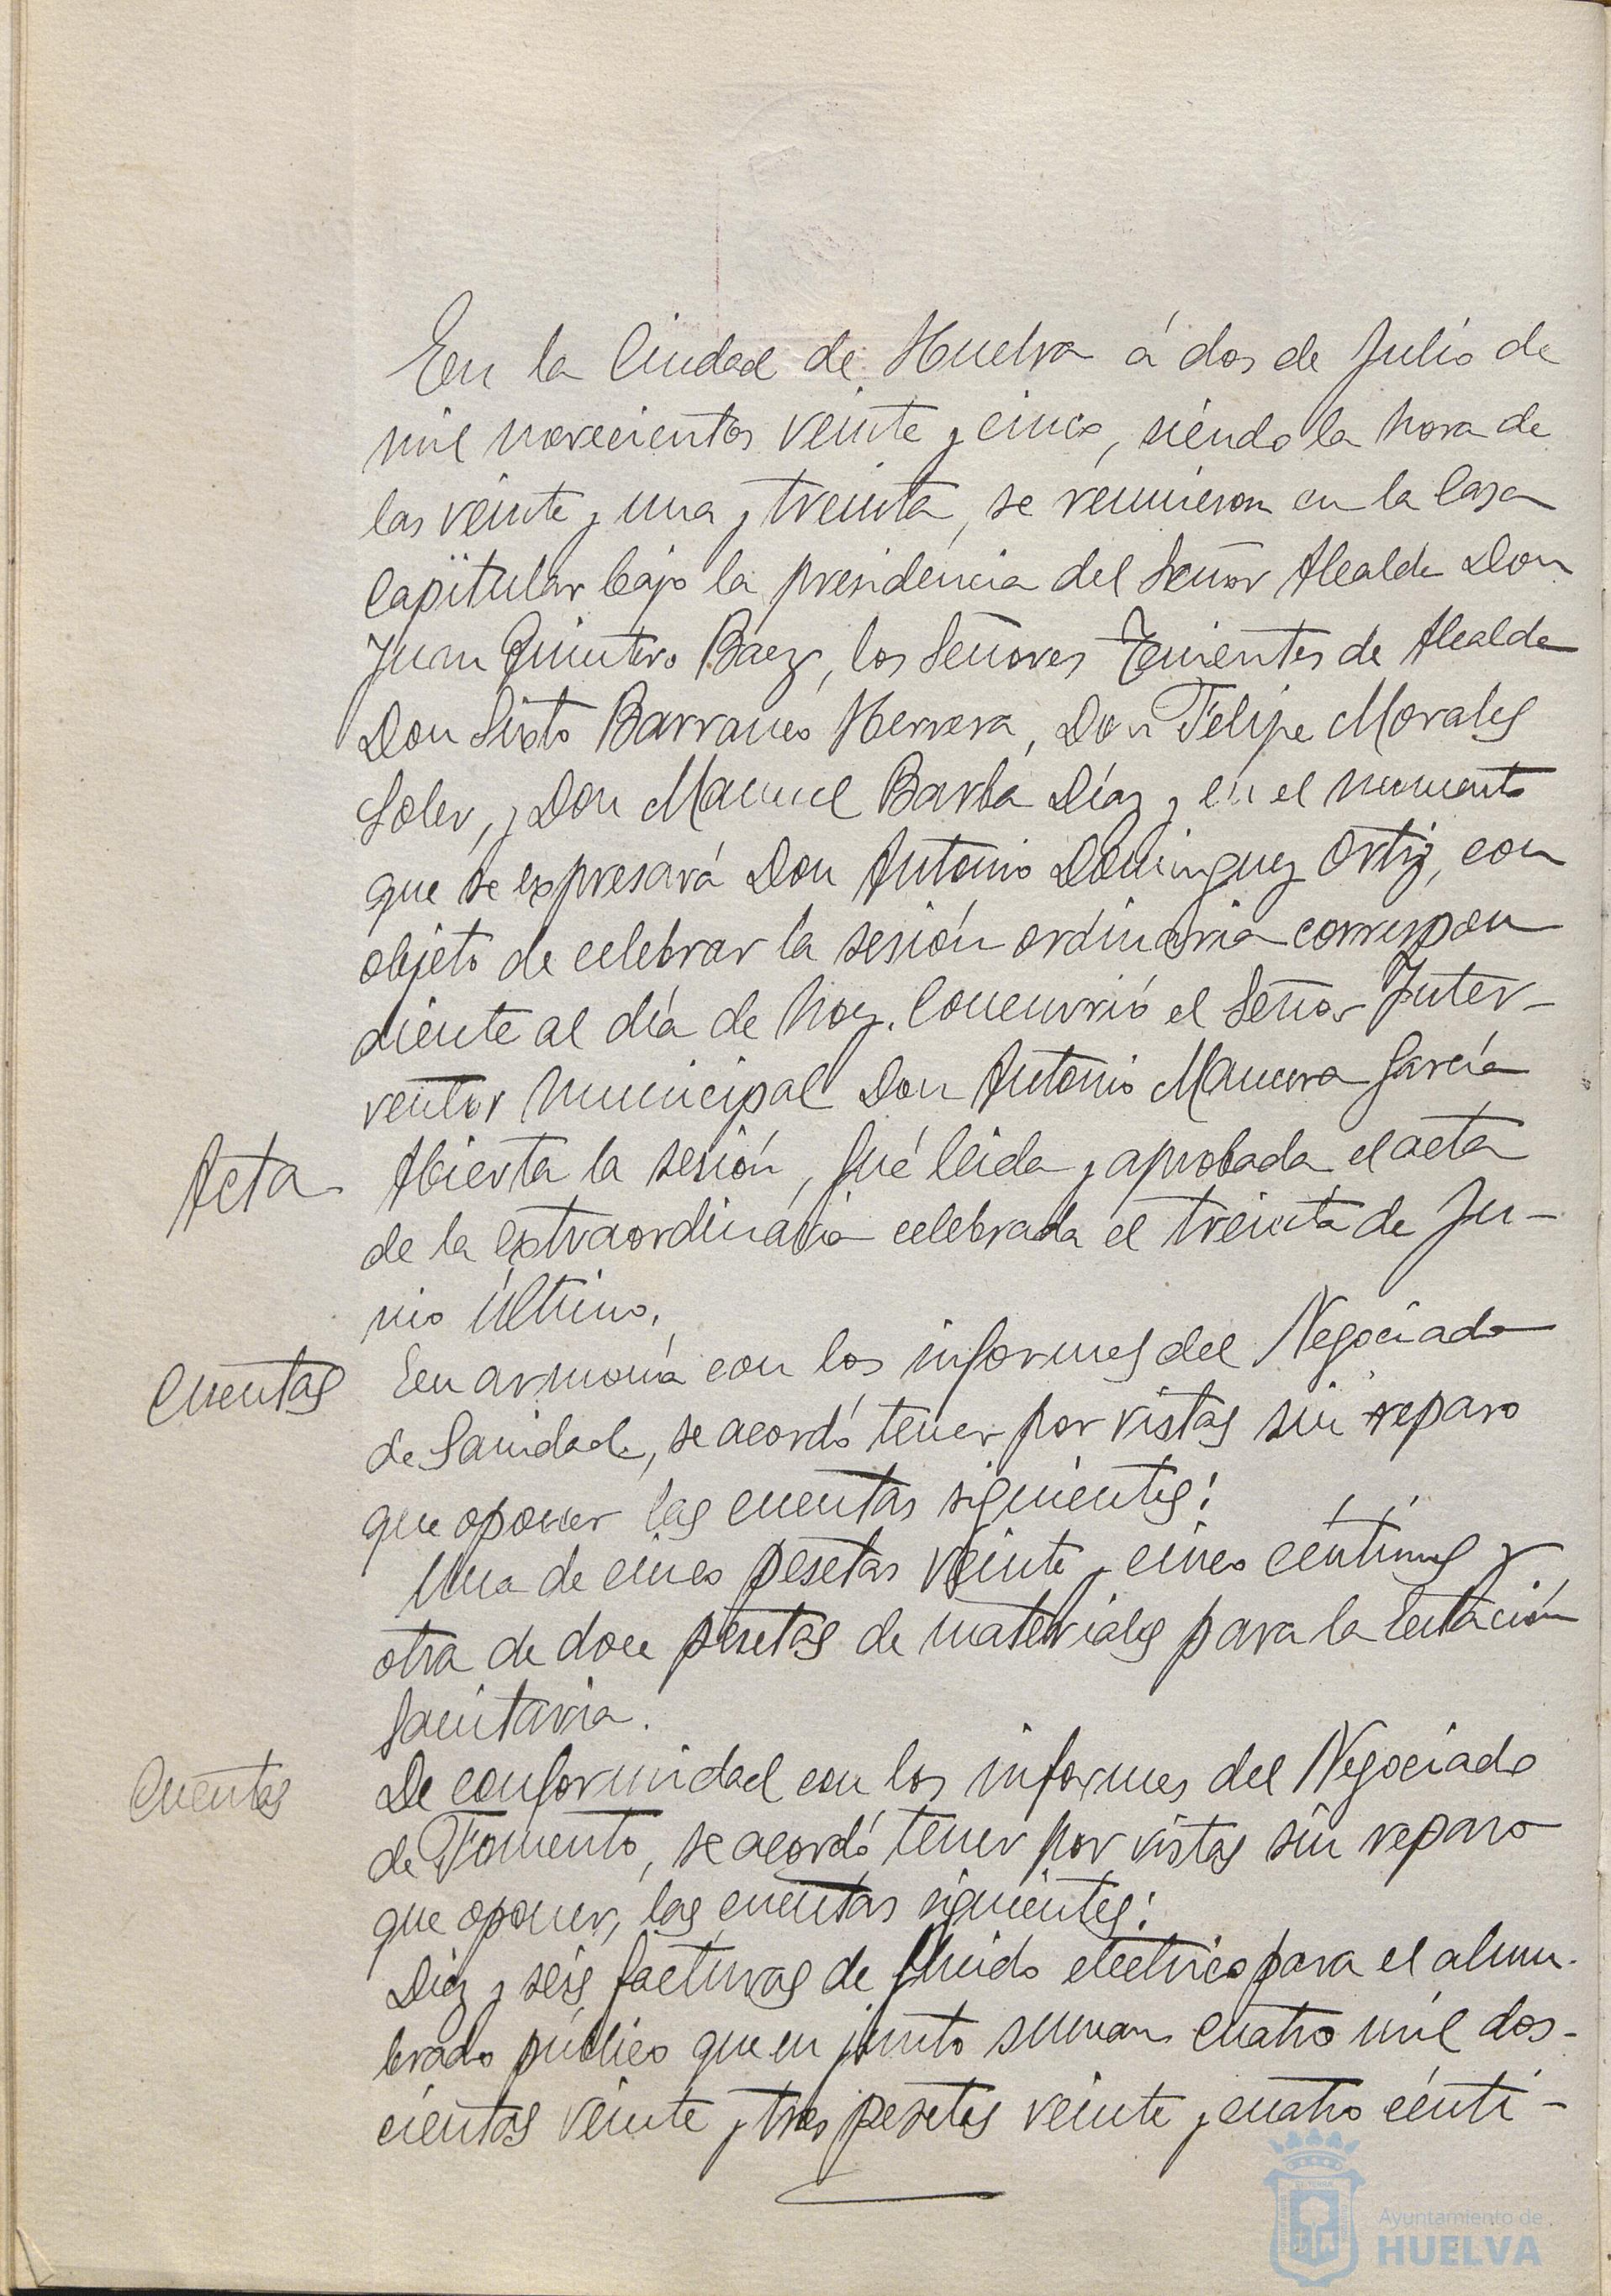 En la Ciudad de Huelva á dos de Julio de
mil novecientos veinte y cinco, siendo la hora de
las veinte y una y treinta, se reunieron en la Casa
Capitular bajo la presidencia del Señor Alcalde Don
Juan Quintero Báez, los Señores Tenientes de Alcalde
Don Sixto Barranco Herrera, Don Felipe Morales
Soler, y Don Manuel Barba Díaz y en el momento
que se expresará Don Antonio Dominguez Ortiz, con
objeto de celebrar la sesión ordinaria correspon
diente al día de hoy. Concurrió el Señor Inter-
ventor Municipal Don Antonio Mancera García
Acta
Abierta la sesión, fué leida y aprobada el acta
de la extraordinaria celebrada el treinta de Ju-
nio último.
Cuentas
En armonía con los informes del Negociado
de Sanidad, se acordó tener por vistas sin reparo
que oponer las cuentas siguientes:
Una de cinco pesetas veinte y cinco céntimos y
otra de doce pesetas de materiales para la Estación
Sanitaria.
Cuentas
De conformidad con los informes del Negociado
de Fomento, se acordó tener por vistas sin reparo
que oponer, las cuentas siguientes:
Diez y seis facturas de fluido electrico para el alum-
brado público que en junto suman cuatro mil dos-
cientas veinte y tres pesetas veinte y cuatro cénti-
Ayuntamiento de
HUELVA